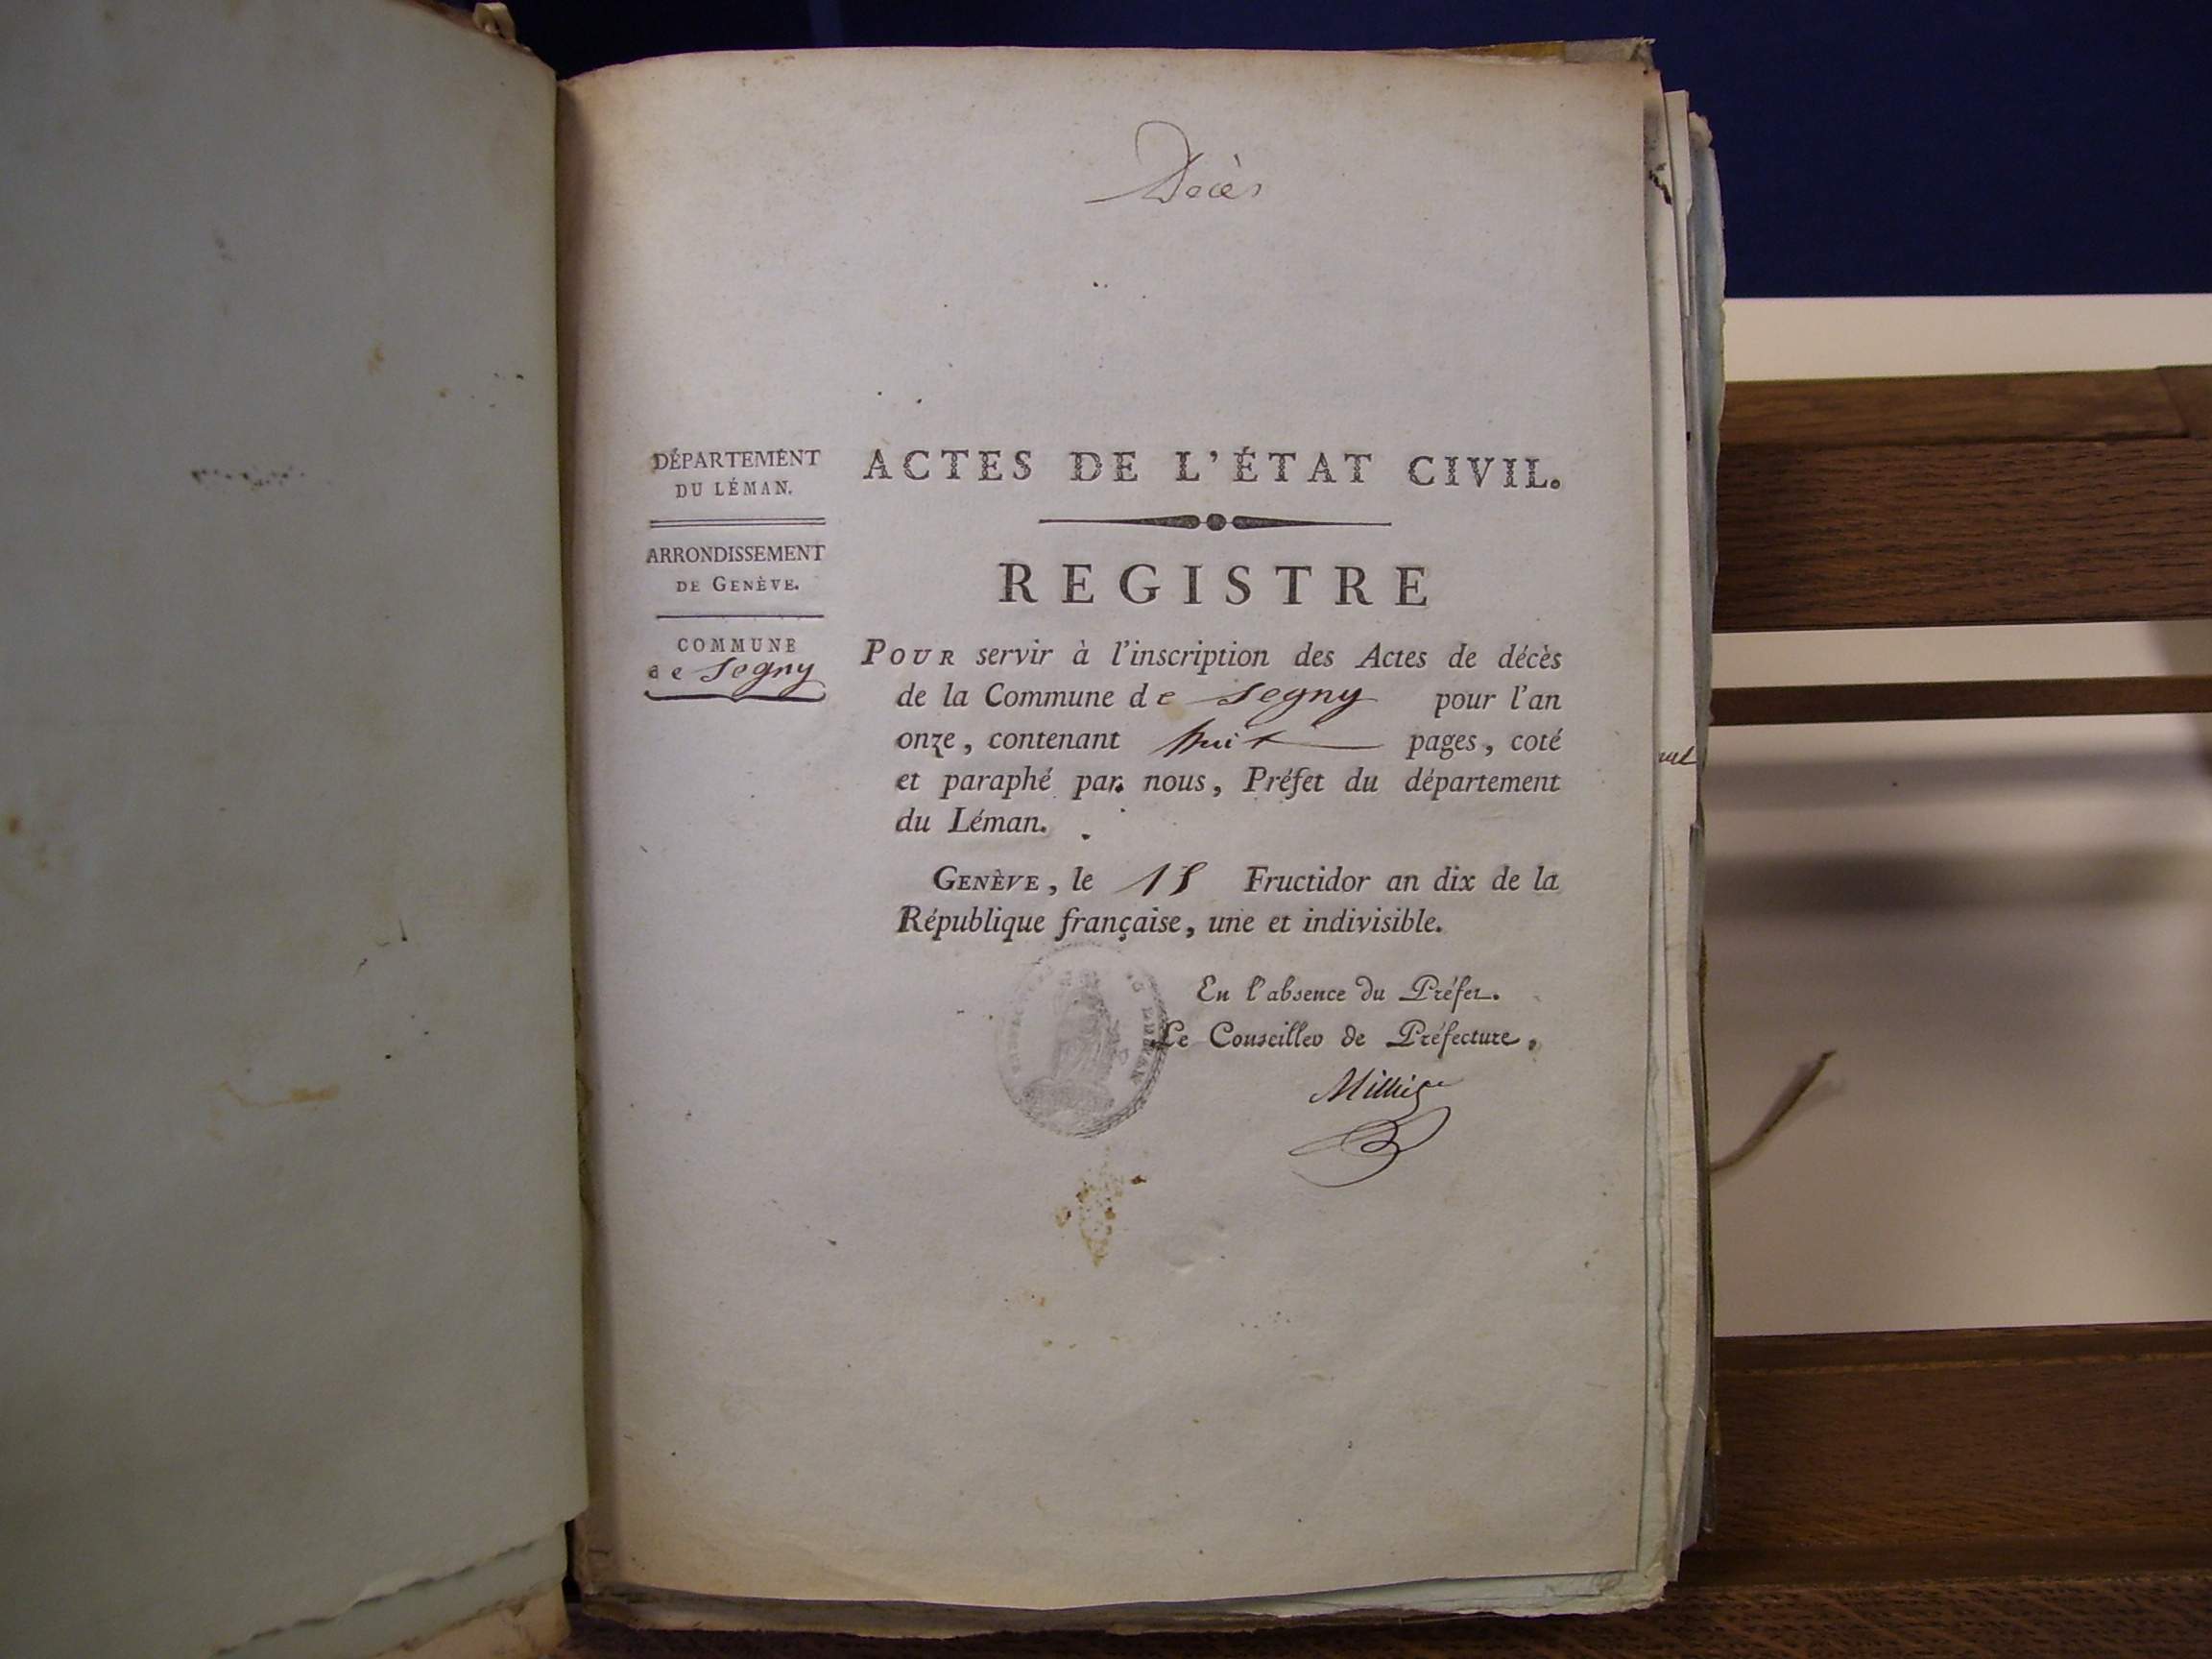 Décès
DÉPARTEMENT
DU LÉMAN.
ARRONDISSEMENT
DE GENÈVE.
COMMUNE
de Segny
ACTES DE L'ÉTAT CIVIL.
REGISTRE
POUR servir à l'inscription des Actes de décès
de la Commune de Segny pour l'an
onze, contenant huit pages, coté
et paraphé par nous, Préfet du département
du Léman.
GENÈVE, le 15 Fructidor an dix de la
République française, une et indivisible.
En l'absence du Préfet.
Le Conseiller de Préfecture,